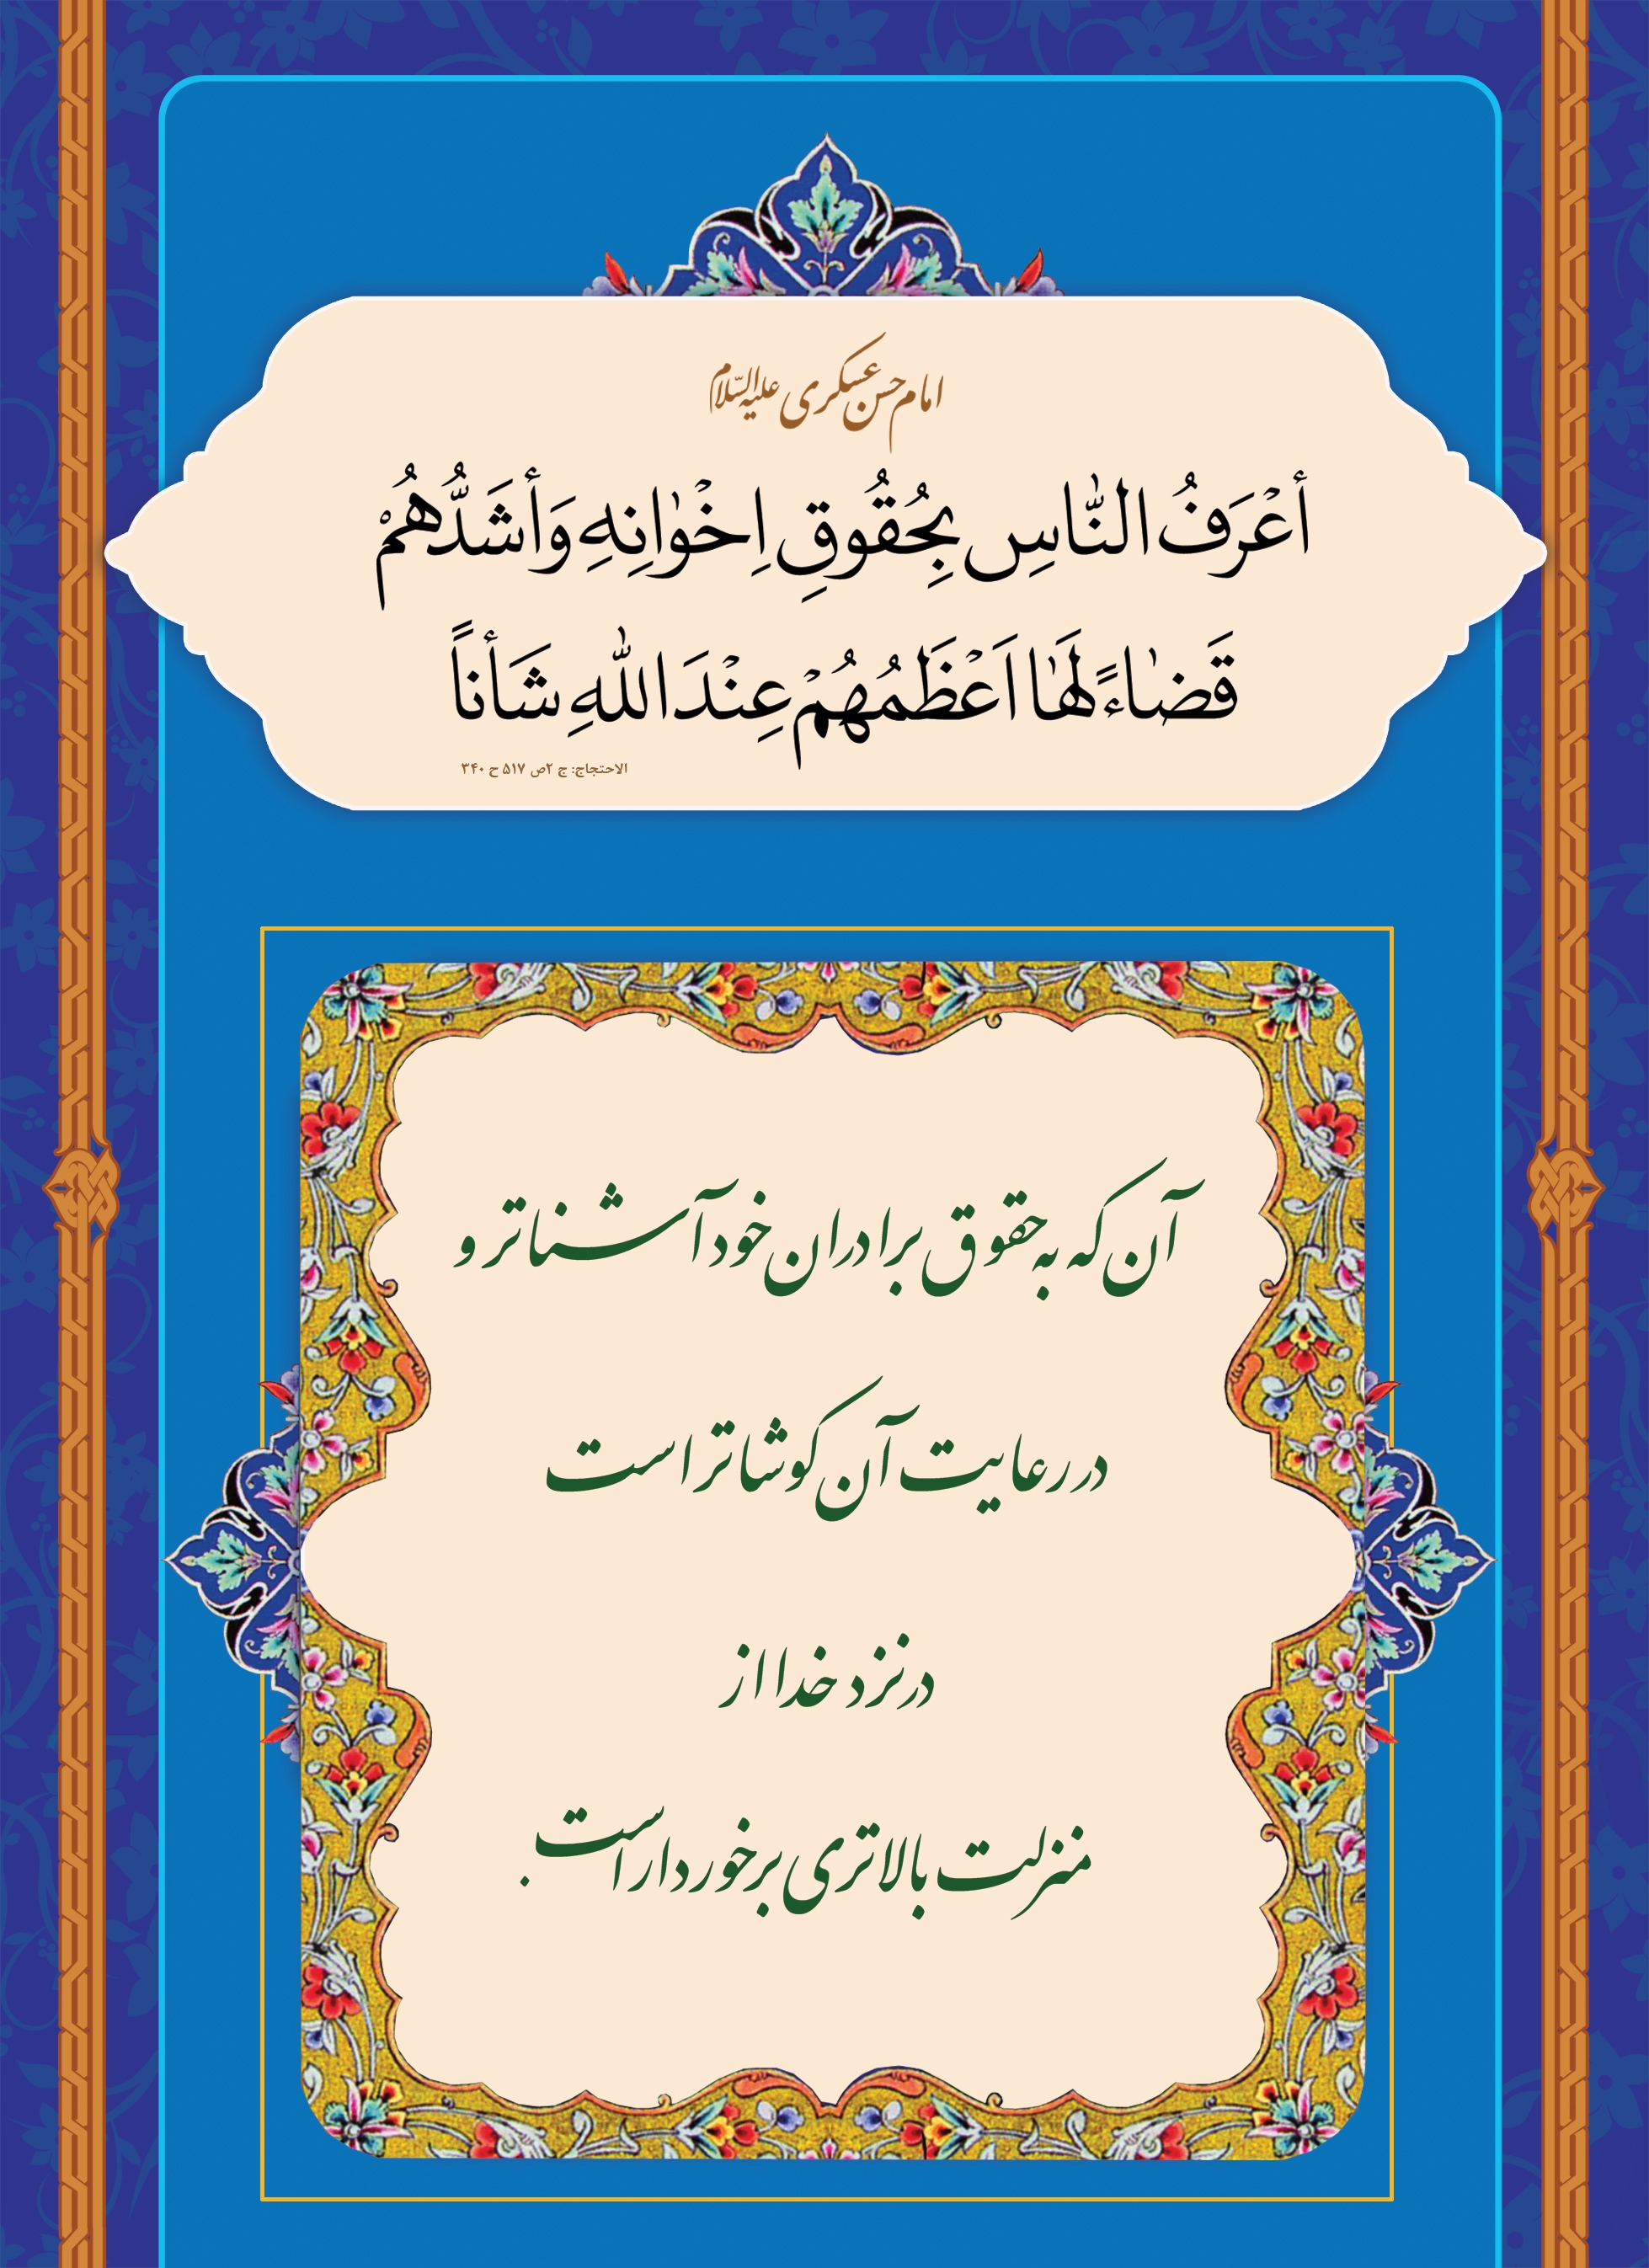 امام حسن عسکری علیه السّلام
أَعْرَفُ النّٰاسِ بِحُقُوقِ اِخْوٰانِهِ وَأَشَدُّهُمْ
قَضٰاءً لَهٰا اَعْظَمُهُمْ عِنْدَ اللّٰهِ شَأناً
الاحتجاج: ج ۲ص ۵۱۷ ح ۳۴۰
آن که به حقوق برادران خود آشناتر و
در رعایت آن کوشاتر است
در نزد خدا از
منزلت بالاتری برخوردار است.